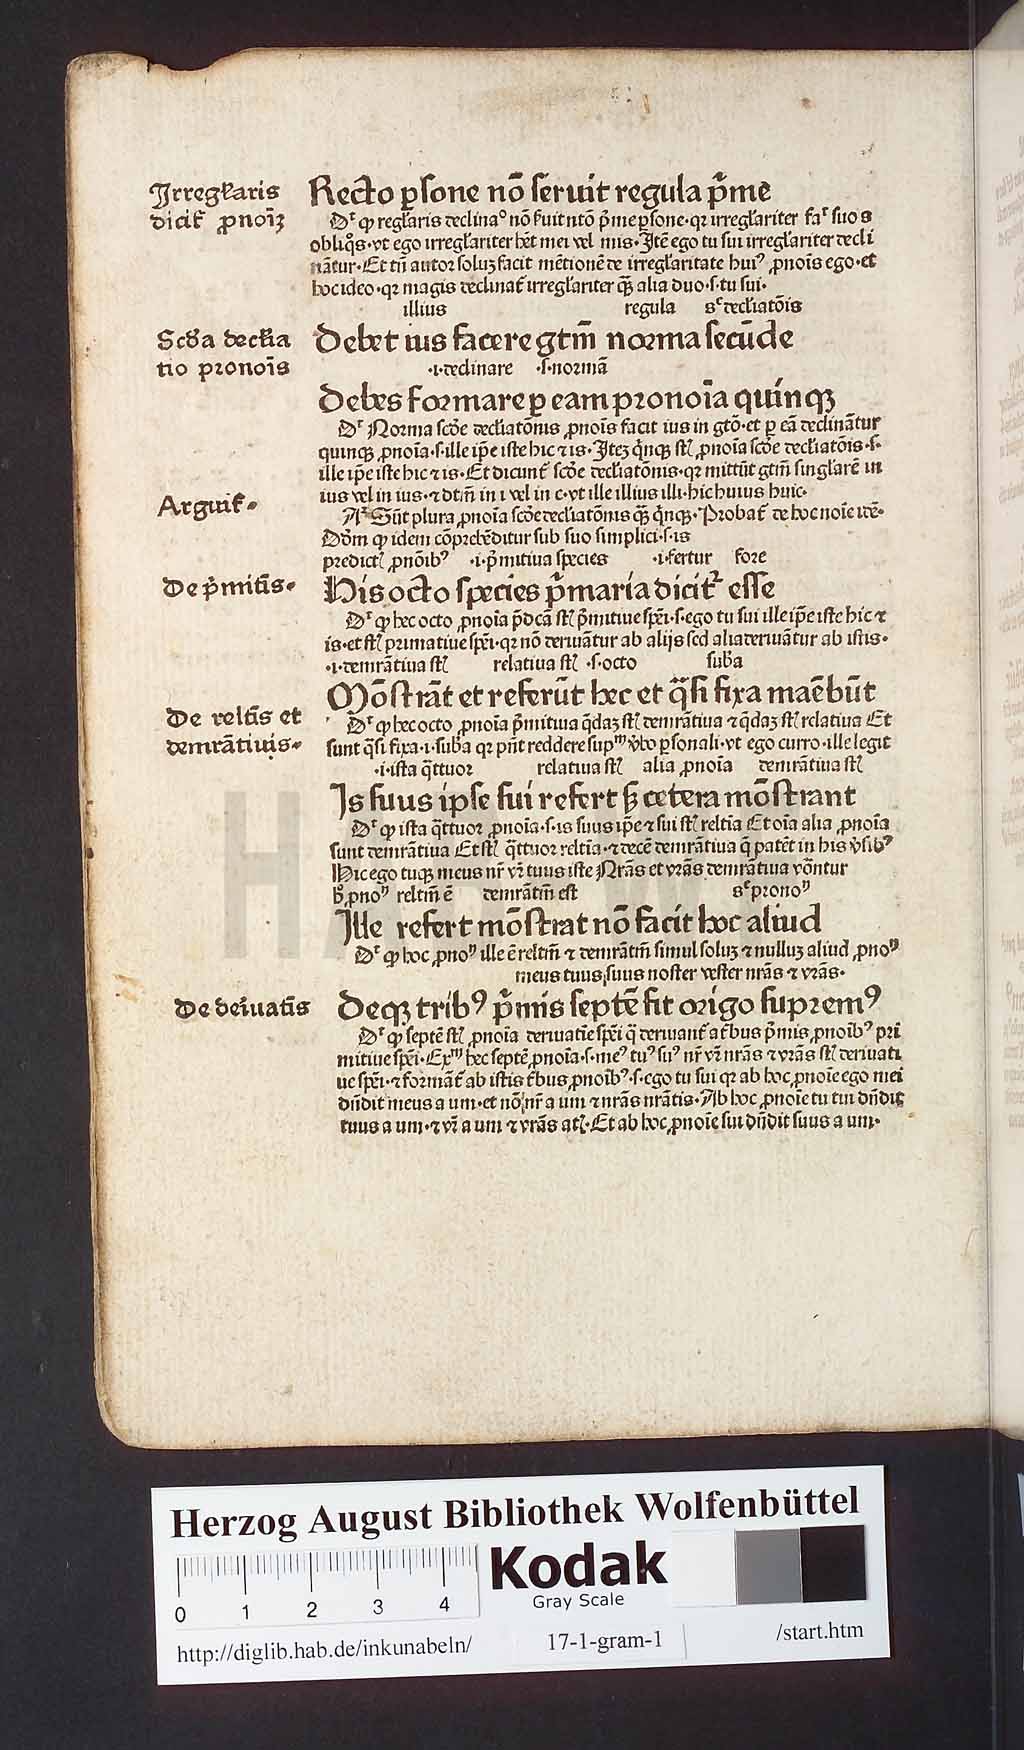 Irregłaris
dicit᷑ ꝓnoīꝫ
Recto ꝑsone nō seruit regula p̄me
Dʳ ꝙ regłaris declinaº nō ẜuit ntō p̄me ꝑsone·qꝛ irregłariter faʳ suos
obliqͦs·vt ego irregłariter hꝫt mei vel mis·Itē ego tu sui irregłariter decli
nātur·Et tn̄ autor soluꝫ facit mētionē de irregłaritate huiꝰ ꝓnoīs ego·et
hoc ideo·qꝛ magis declinat᷑ irregłariter qꝫ̄ alia duo·s·tu sui·
illius regula sᵉ decłiatōis
Scd'a decłia
tio pronoīs
Debet ius facere gtm̄ norma secūde
·i·declinare ·s·normā
Debes formare ꝑ eam pronoīa quinqꝫ
Dʳ Norma scd'e decłiatōnis ꝓnoīs facit ius in gtō·et ꝑ eā declinātur
quinqꝫ ꝓnoīa·s·ille ip̄e iste hic ⁊ is·Iteꝫ qͥnqꝫ st̄ ꝓnoīa scd'e decłiatōis·s·
ille ip̄e iste hic ⁊ is·Et dicunt᷑ scd'e decłiatōnis·qꝛ mittūt gtm̄ singłarē in
ius vel in ius·⁊ dtm̄ in i vel in c·vt ille illius illi·hic huius huic·
Arguit᷑·
Aʳ Sūt plura ꝓnoīa scd'e decłiatōnis qꝫ̄ qͥnqꝫ·Probat᷑ de hoc noīe idē·
Dōm ꝙ idem cōprehēditur sub suo simplici·s·is
predictꝭ ꝓnōibꝰ ·i·p̄mitiua species ·i·fertur fore
De p̄mitīs·
His octo species p̄maria dicit᷑ esse
Dʳ ꝙ hec octo ꝓnoīa p̄dcā st̄ p̄mitiue spēi·s·ego tu sui ille ip̄e iste hic ⁊
is·et st̄ primatiue spēi·qꝛ nō deriuātur ab alijs sed alia deriuātur ab istis·
·i·demrātiua st̄ relatiua st̄ ·s·octo sub'a
De reltīs et
demrātiuis·
Mōstrāt et referūt hec et qͣsi fixa maēbūt
Dʳ ꝙ hec octo ꝓnoīa p̄mitiua qͣdaꝫ st̄ demrātiua ⁊ qͣdaꝫ st̄ relatiua Et
sunt qͣsi fixa·i·sub'a qꝛ pn̄t reddere supᵐ v'bo ꝑsonali·vt ego curro·ille legit
·i·ista qͣttuor relatiua st̄ alia ꝓnoīa demrātiua st̄
Is suus ipse sui refert ꝫ cetera mōstrant
Dʳ ꝙ ista qͣttuor ꝓnoīa·s·is suus ip̄e ⁊ sui st̄ reltīa Et oīa alia ꝓnoīa
sunt demrātiua Et st̄ qͣttuor reltīa·⁊ decē demrātiua q̄ patēt in his v'sibꝰ
Hic ego tuqꝫ meus nr̄ vr̄ tuus iste Nrās et vrās demrātiua vōntur
hͦ ꝓnoⁿ reltm̄ ē demrātm̄ est sᵉ pronoⁿ
Ille refert mōstrat nō facit hoc aliud
Dʳ ꝙ hoc ꝓnoⁿ ille ē reltm̄ ⁊ demrātm̄ simul soluꝫ ⁊ nulluꝫ aliud ꝓnoⁿ
meus tuus suus noster vester nrās ⁊ vrās·
De deriuatīs
Deqꝫ tribꝰ p̄mis septē fit origo supremꝰ
Dʳ ꝙ septē st̄ ꝓnoīa deriuatie spēi q̄ deriuant᷑ a tͥbus p̄mis ꝓnoībꝰ pri
mitiue spēi·Exᵐ hec septē ꝓnoīa·s·meꝰ tuꝰ suꝰ nr̄ vr̄ nrās ⁊ vrās st̄ deriuati
ue spēi·⁊ formāt᷑ ab istis tͥbus ꝓnoībꝰ·s·ego tu sui qꝛ ab hoc ꝓnoīe ego mei
dn̄dit meus a um·et nō nr̄ a um ⁊ nrās nrātis·Ab hoc ꝓnoīe tu tui dn̄dit
tuus a um·⁊ vr̄ a um ⁊ vrās atꝭ·Et ab hoc ꝓnoīe sui dn̄dit suus a um·
HAB
Herzog August Bibliothek Wolfenbüttel
0 1 2 3 4
Kodak
Gray Scale
http://diglib.hab.de/inkunabeln/ 17-1-gram-1 /start.htm